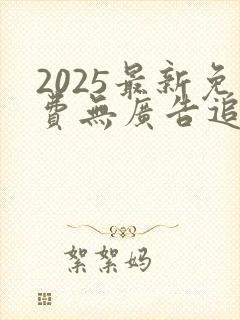 2025最新免
費無廣告追
絮絮妈